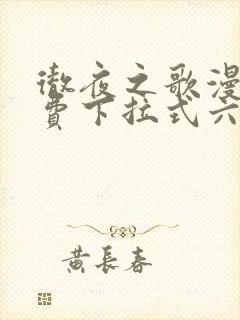 徹夜之歌漫
費下拉式六
黃長春